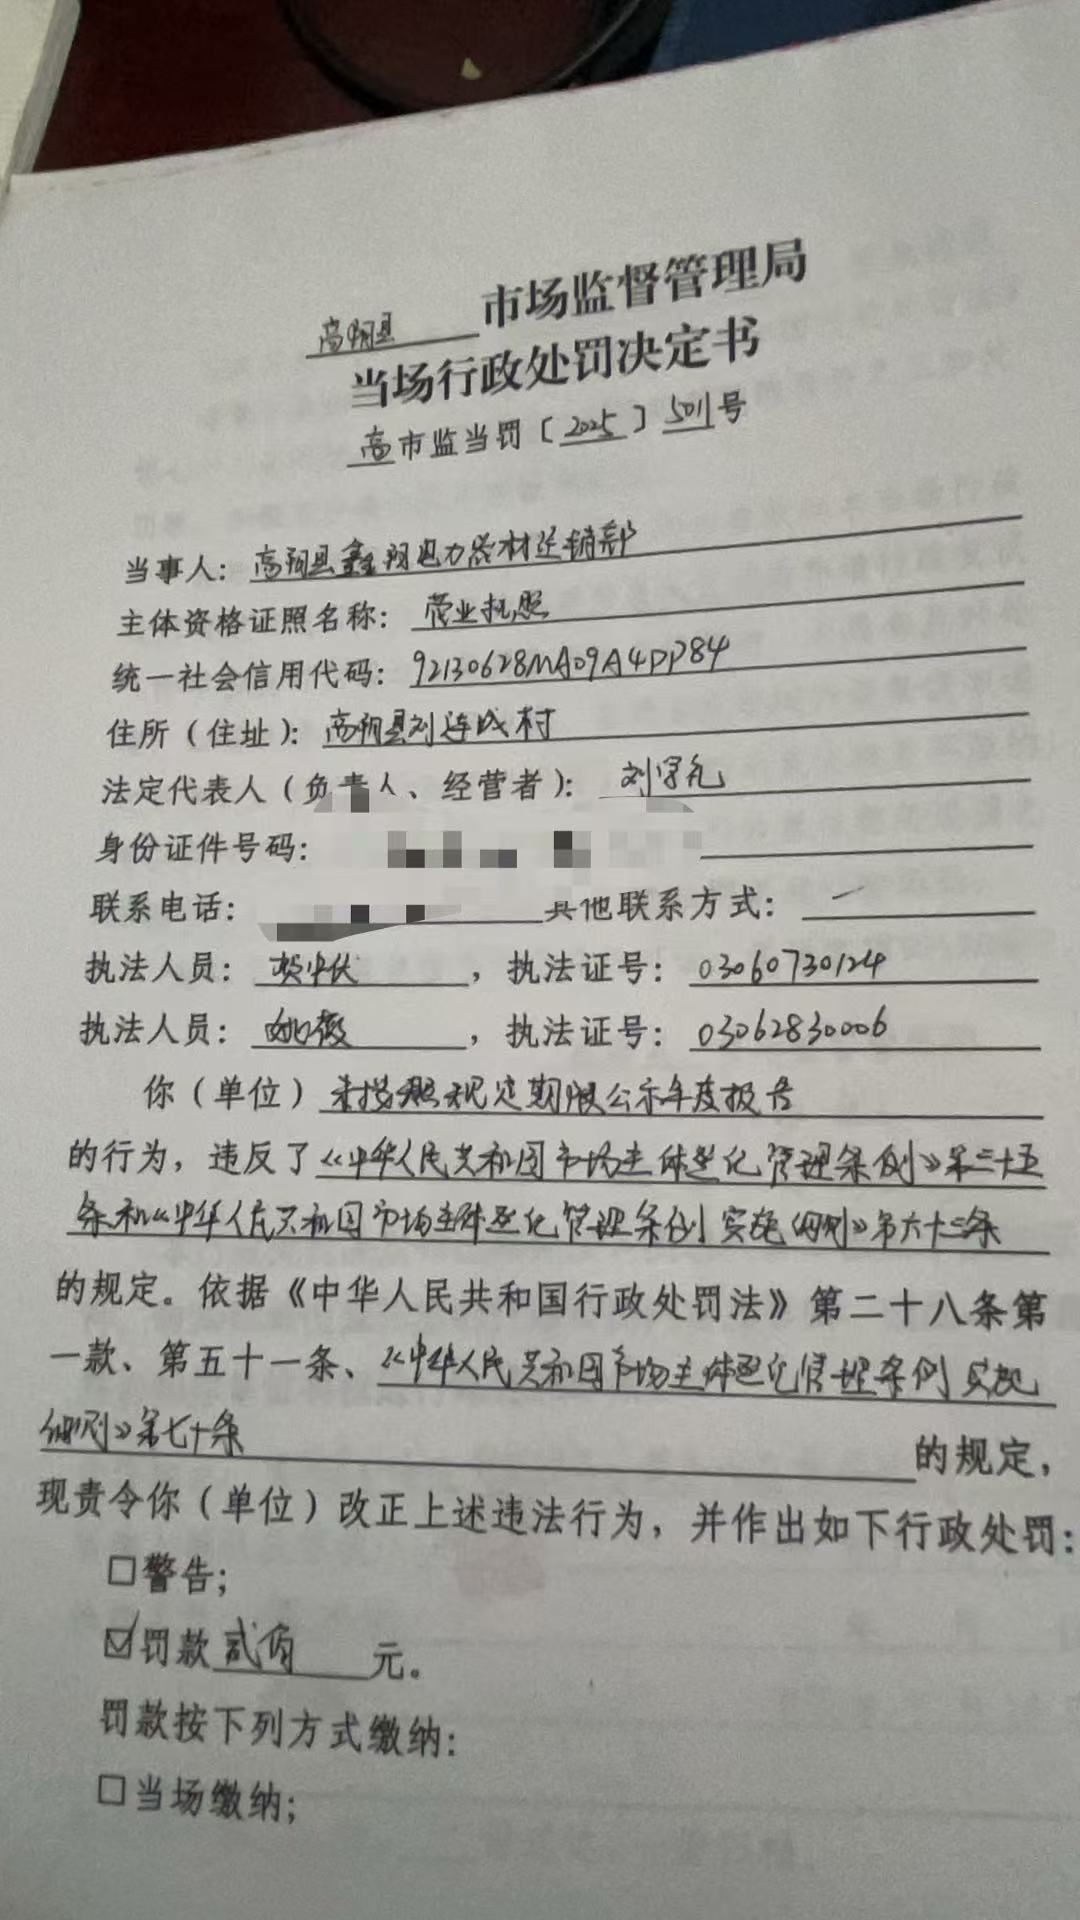 高阳县市场监督管理局
当场行政处罚决定书
高市监当罚〔2025〕5011号
当事人：高阳县鑫翔电力器材经销部
主体资格证照名称：营业执照
统一社会信用代码：92130628MA09A4DP84
住所（住址）：高阳县刘连城村
法定代表人（负责人、经营者）：刘
身份证件号码：
联系电话： 其他联系方式：一
执法人员： ，执法证号：03060730124
执法人员：姚微，执法证号：03062830006
你（单位）未按照规定期限公示年度报告
的行为，违反了《中华人民共和国市场主体登记管理条例》第三十五
条和《中华人民共和国市场主体登记管理条例实施细则》第六十三条
的规定。依据《中华人民共和国行政处罚法》第二十八条第
一款、第五十一条、《中华人民共和国市场主体登记管理条例实施
细则》第七十条的规定，
现责令你（单位）改正上述违法行为，并作出如下行政处罚：
□警告；
☑罚款贰佰元。
罚款按下列方式缴纳：
□当场缴纳；